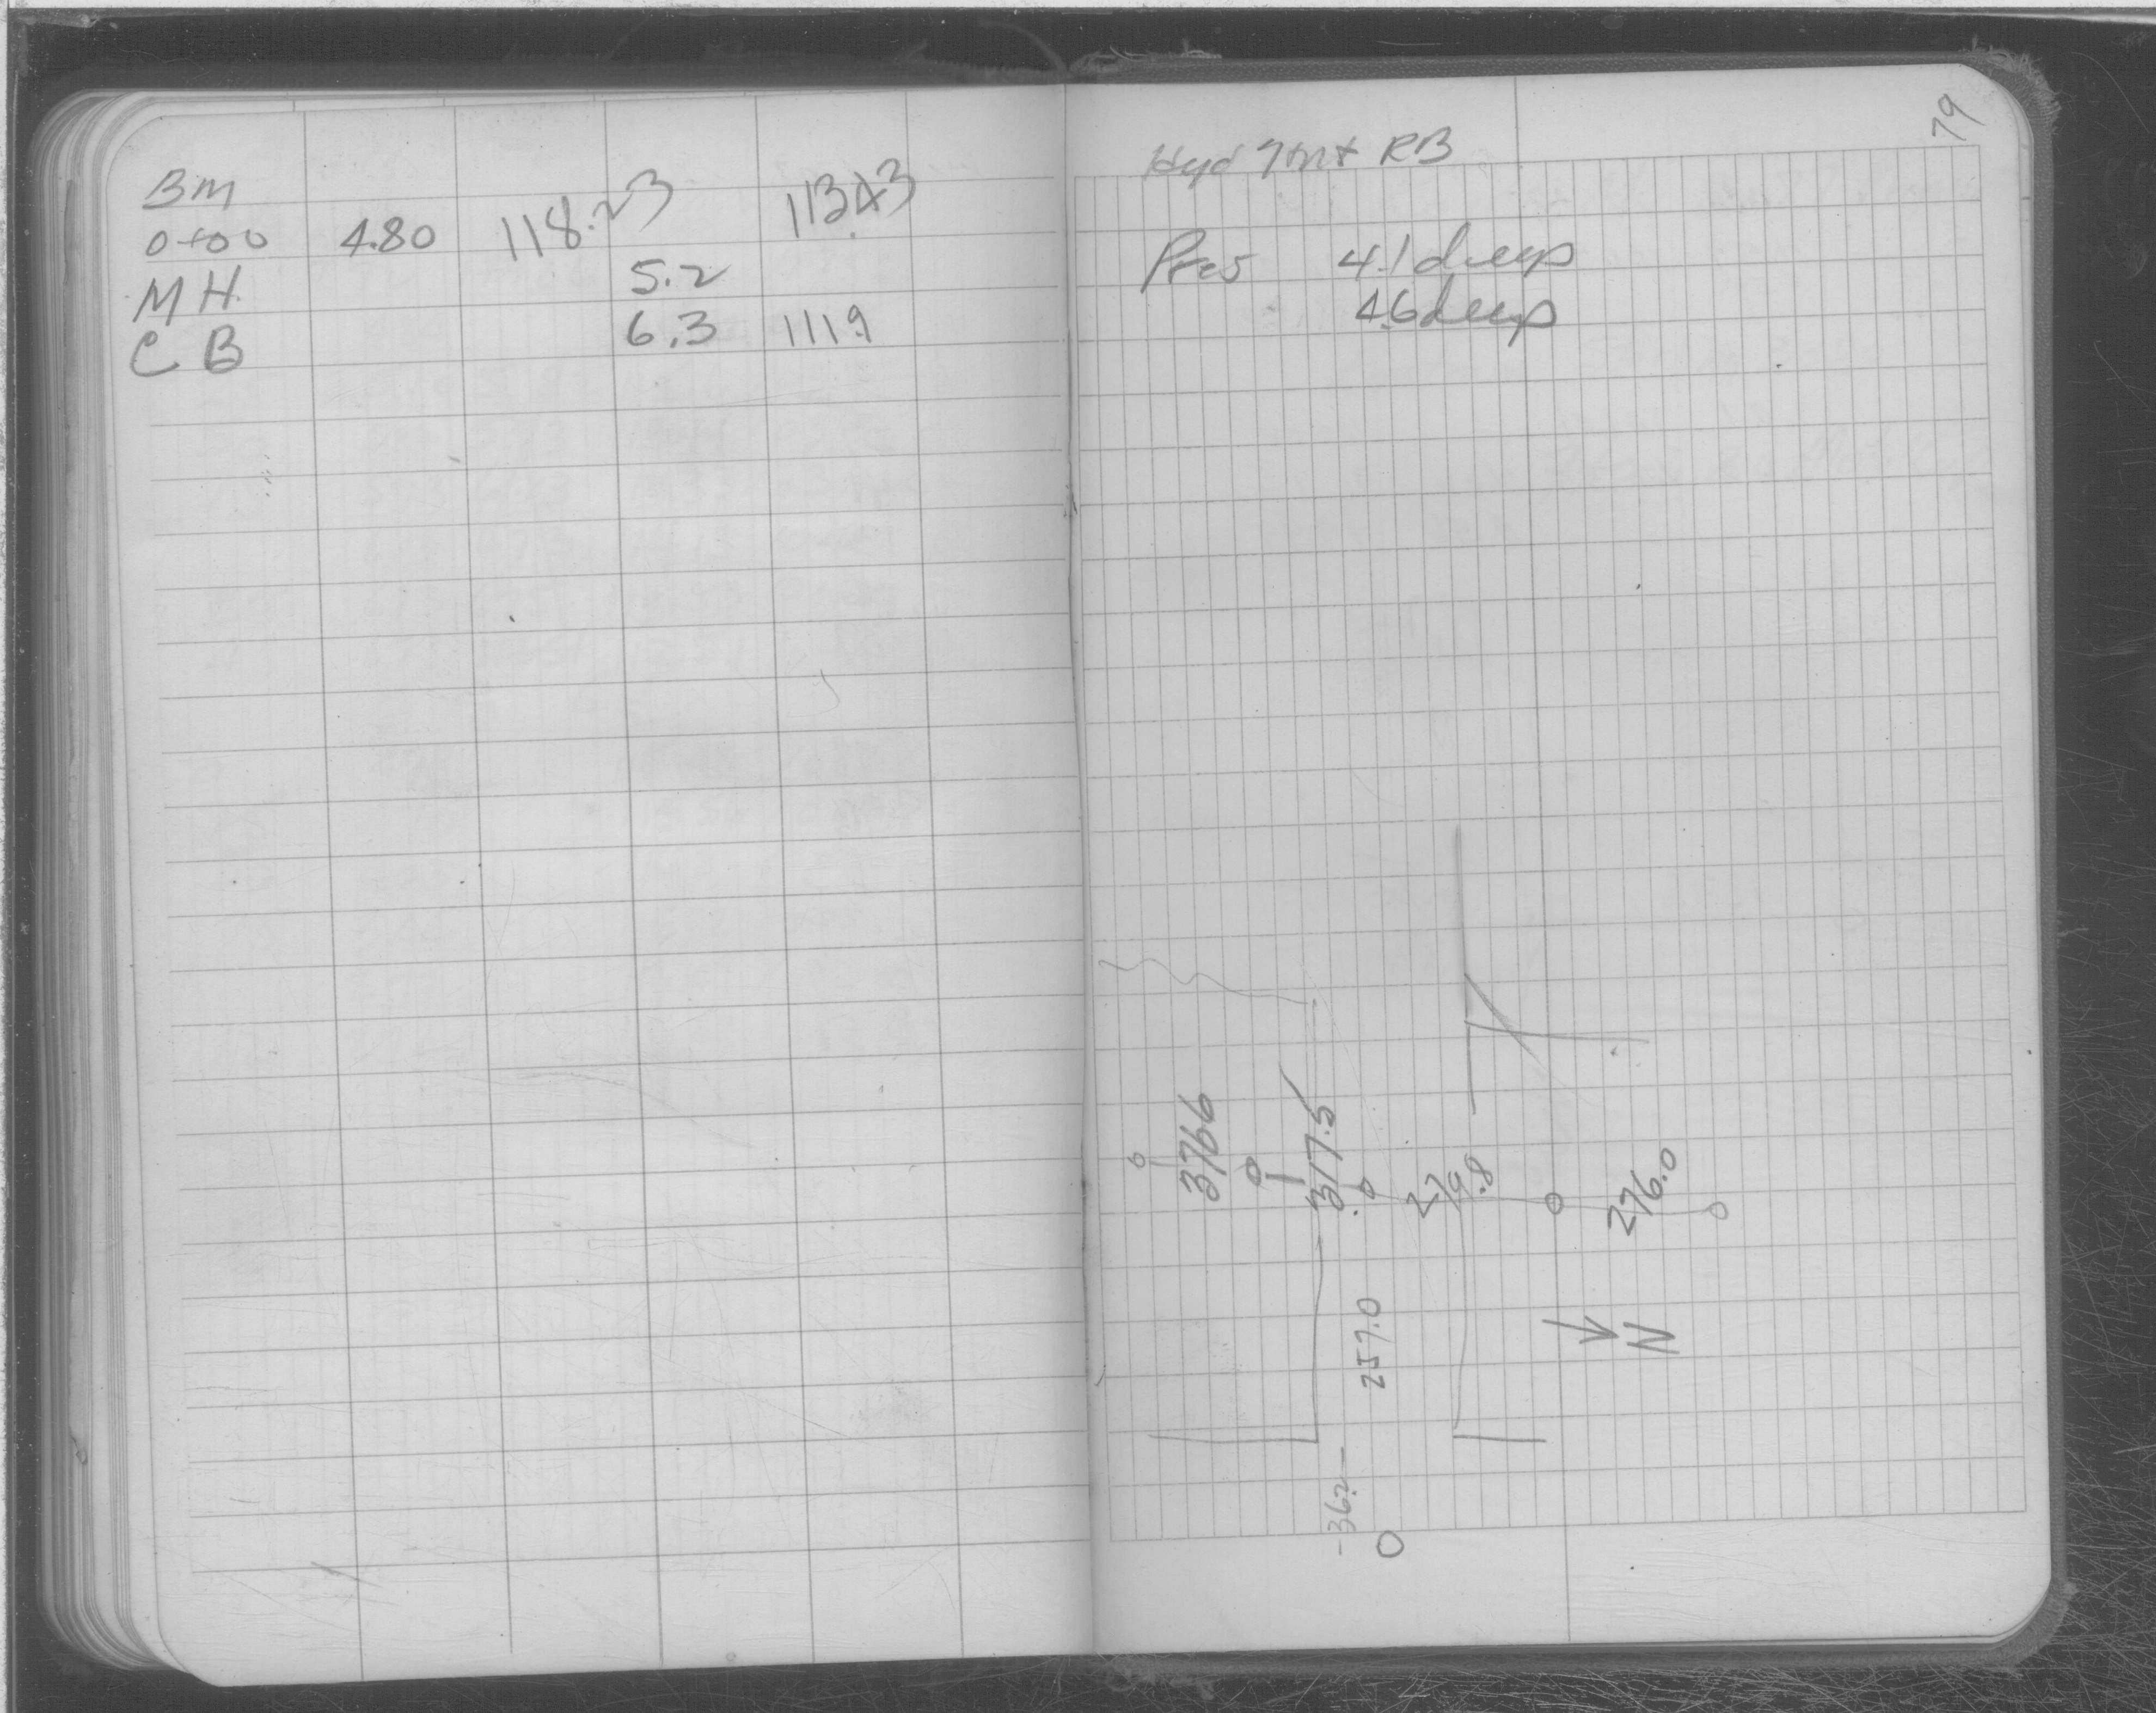 BM
0+00 4.80 118.23 113.43
MH 5.2
CB 6.3 111.9
79
Hyd RB
Pres 4.1 deep
4.6 deep
376.6
317.5
279.8
276.0
257.0
N
-362-